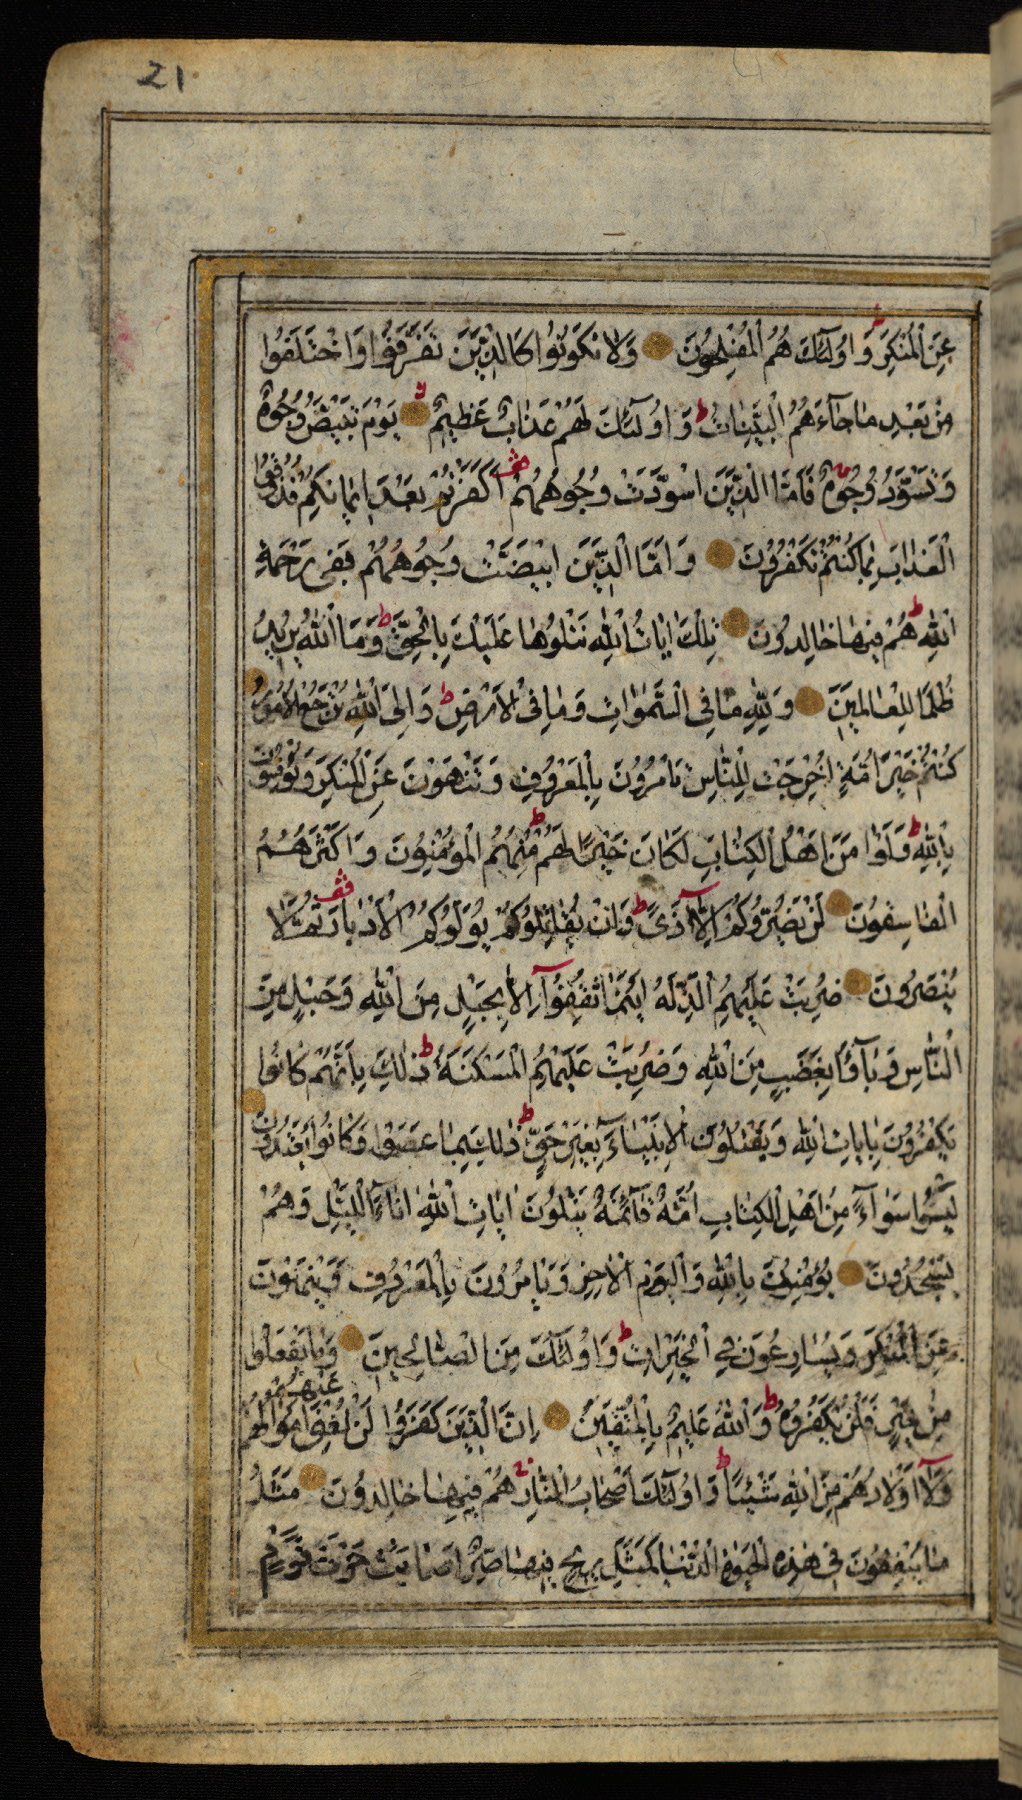 21
عَنِ الْمُنْكَرِ وَاُولٰٓئِكَ هُمُ الْمُفْلِحُونَ وَلَا تَكُونُوا كَالَّذِينَ تَفَرَّقُوا وَاخْتَلَفُوا
مِنْ بَعْدِ مَا جَآءَهُمُ الْبَيِّنَاتُ ط وَاُولٰٓئِكَ لَهُمْ عَذَابٌ عَظِيمٌ لا يَوْمَ تَبْيَضُّ وُجُوهٌ
وَتَسْوَدُّ وُجُوهٌ فَاَمَّا الَّذِينَ اسْوَدَّتْ وُجُوهُهُمْ اَكَفَرْتُمْ بَعْدَ اِيمَانِكُمْ فَذُوقُوا
الْعَذَابَ بِمَا كُنْتُمْ تَكْفُرُونَ وَاَمَّا الَّذِينَ ابْيَضَّتْ وُجُوهُهُمْ فَفِى رَحْمَةِ
اللّٰهِ ط هُمْ فِيهَا خَالِدُونَ تِلْكَ اٰيَاتُ اللّٰهِ نَتْلُوهَا عَلَيْكَ بِالْحَقِّ ط وَمَا اللّٰهُ يُرِيدُ
ظُلْمًا لِلْعَالَمِينَ وَلِلّٰهِ مَا فِي السَّمٰوَاتِ وَمَا فِي الْاَرْضِ ط وَاِلَى اللّٰهِ تُرْجَعُ الْاُمُورُ
كُنْتُمْ خَيْرَ اُمَّةٍ اُخْرِجَتْ لِلنَّاسِ تَاْمُرُونَ بِالْمَعْرُوفِ وَتَنْهَوْنَ عَنِ الْمُنْكَرِ وَتُؤْمِنُونَ
بِاللّٰهِ ط وَلَوْ اٰمَنَ اَهْلُ الْكِتَابِ لَكَانَ خَيْرًا لَهُمْ ط مِنْهُمُ الْمُؤْمِنُونَ وَاَكْثَرُهُمُ
الْفَاسِقُونَ لَنْ يَضُرُّوكُمْ اِلَّآ اَذًى ط وَاِنْ يُقَاتِلُوكُمْ يُوَلُّوكُمُ الْاَدْبَارَ ثُمَّ لَا
يُنْصَرُونَ ضُرِبَتْ عَلَيْهِمُ الذِّلَّةُ اَيْنَمَا ثُقِفُوآ اِلَّا بِحَبْلٍ مِنَ اللّٰهِ وَحَبْلٍ مِنَ
النَّاسِ وَبَآؤُا بِغَضَبٍ مِنَ اللّٰهِ وَضُرِبَتْ عَلَيْهِمُ الْمَسْكَنَةُ ط ذٰلِكَ بِاَنَّهُمْ كَانُوا
يَكْفُرُونَ بِاٰيَاتِ اللّٰهِ وَيَقْتُلُونَ الْاَنْبِيَآءَ بِغَيْرِ حَقٍّ ط ذٰلِكَ بِمَا عَصَوْا وَكَانُوا يَعْتَدُونَ
لَيْسُوا سَوَآءً مِنْ اَهْلِ الْكِتَابِ اُمَّةٌ قَآئِمَةٌ يَتْلُونَ اٰيَاتِ اللّٰهِ اٰنَآءَ اللَّيْلِ وَهُمْ
يَسْجُدُونَ يُؤْمِنُونَ بِاللّٰهِ وَالْيَوْمِ الْاٰخِرِ وَيَاْمُرُونَ بِالْمَعْرُوفِ وَيَنْهَوْنَ
عَنِ الْمُنْكَرِ وَيُسَارِعُونَ فِي الْخَيْرَاتِ ط وَاُولٰٓئِكَ مِنَ الصَّالِحِينَ وَمَا يَفْعَلُوا
مِنْ خَيْرٍ فَلَنْ يُكْفَرُوهُ ط وَاللّٰهُ عَلِيمٌ بِالْمُتَّقِينَ اِنَّ الَّذِينَ كَفَرُوا لَنْ تُغْنِيَ عَنْهُمْ اَمْوَالُهُمْ
وَلَآ اَوْلَادُهُمْ مِنَ اللّٰهِ شَيْئًا ط وَاُولٰٓئِكَ اَصْحَابُ النَّارِ هُمْ فِيهَا خَالِدُونَ مَثَلُ
مَا يُنْفِقُونَ فِي هٰذِهِ الْحَيٰوةِ الدُّنْيَا كَمَثَلِ رِيحٍ فِيهَا صِرٌّ اَصَابَتْ حَرْثَ قَوْمٍ